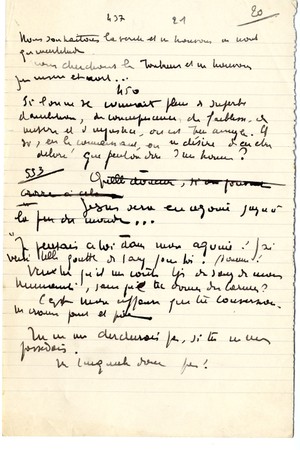 437 21 20
Nous souhaitons la vérité et ne trouvons en nous
qu'incertitude
nous cherchons le bonheur et ne trouvons
que misère et mort...
450
Si l'on ne se connait plein de superbe
d'ambition, de concupiscence, de faiblesse, de
misère et d'injustice, on est bien aveugle. Et
si, en le connaissant, on ne désire d'en être
délivré, que peut-on dire d'un homme ?
553
Jésus sera en agonie jusqu'à
la fin du monde...
"Je pensais à toi dans mon agonie ! J'ai
versé telle goutte de sang pour toi !
Veux-tu qu'il me coûte du sang de mon
humanité, sans que tu donnes des larmes ?
C'est mon affaire que ta conversion.
Ne crains point et prie
Tu ne me chercherais pas, si tu ne me
possédais.
Ne t'inquiète donc pas !